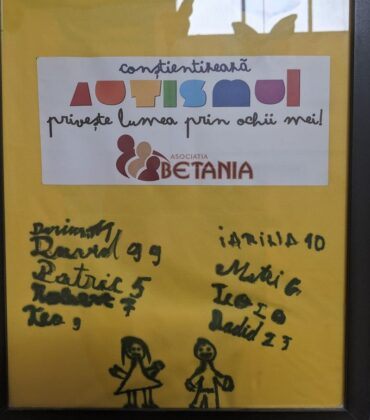 conștientizează
AUTISMUl
privește lumea prin ochii mei!
ASOCIAȚIA
BETANIA
David 99
Patric 5
Robert 7
Kea 9
IARINA 10
Matei 6